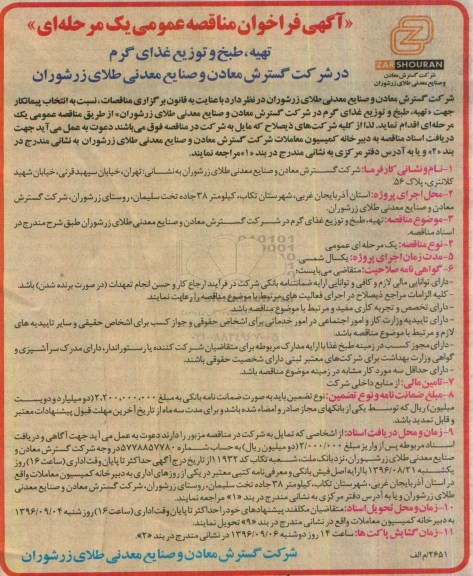 «آگهی فراخوان مناقصه عمومی یک مرحله‌ای»
تهیه، طبخ و توزیع غذای گرم
در شرکت گسترش معادن و صنایع معدنی طلای زرشوران
ZARSHOURAN
شرکت گسترش معادن
وصنایع معدنی طلای زرشوران
شرکت گسترش معادن و صنایع معدنی طلای زرشوران در نظر دارد با عنایت به قانون برگزاری مناقصات، نسبت به انتخاب پیمانکار
جهت «تهیه، طبخ و توزیع غذای گرم در شرکت گسترش معادن و صنایع معدنی طلای زرشوران» از طریق مناقصه عمومی یک
مرحله‌ای اقدام نماید. لذا از کلیه شرکت‌های ذیصلاح که مایل به شرکت در مناقصه فوق می‌باشند دعوت به عمل می‌آید جهت
دریافت اسناد مناقصه به دبیرخانه کمیسیون معاملات شرکت گسترش معادن و صنایع معدنی طلای زرشوران به نشانی مندرج در
بند «۲» و یا به آدرس دفتر مرکزی به نشانی مندرج در بند «۱» مراجعه نمایند.
۱-نام و نشانی کارفرما: شرکت گسترش معادن و صنایع معدنی طلای زرشوران به نشانی: تهران، خیابان سپهبد قرنی، خیابان شهید
کلانتری، پلاک ۵۶.
۲-محل اجرای پروژه: استان آذربایجان غربی، شهرستان تکاب، کیلومتر ۳۸ جاده تخت سلیمان، روستای زرشوران، شرکت گسترش
معادن و صنایع معدنی طلای زرشوران.
۳-موضوع مناقصه: تهیه، طبخ و توزیع غذای گرم در شرکت گسترش معادن و صنایع معدنی طلای زرشوران طبق شرح مندرج در
اسناد مناقصه.
۴-نوع مناقصه: یک مرحله‌ای عمومی
۵-مدت زمان اجرای پروژه: یکسال شمسی.
۶-گواهی نامه صلاحیت: متقاضی می‌بایست:
-دارای توانایی مالی لازم و کافی و توانایی ارایه ضمانتنامه بانکی شرکت در فرآیند ارجاع کار و حسن انجام تعهدات (در صورت برنده شدن) باشد.
-کلیه الزامات مراجع ذیصلاح در اجرای فعالیت های مرتبط با موضوع مناقصه را رعایت نمایند.
-دارای تخصص و تجربه کاری مفید و مرتبط با موضوع مناقصه باشد.
-دارای تاییدیه وزارت کار و امور اجتماعی در امور خدماتی برای اشخاص حقوقی و جواز کسب برای اشخاص حقیقی و سایر تاییدیه های
لازم و مرتبط با موضوع مناقصه باشد.
-دارای مجوز کسب در زمینه طبخ غذا با ارایه مدارک مربوطه برای متقاضیان شرکت کننده یا رستوراندار، دارای مدرک سرآشپزی و
گواهی وزارت بهداشت برای شرکت‌های معتبر ثبتی دارای شخصیت حقوقی باشند.
-دارای حداقل سه مورد کار مشابه در زمینه موضوع مناقصه باشد.
۷-تامین مالی: از منابع داخلی شرکت
۸-مبلغ ضمانت نامه و نوع تضمین: نوع تضمین باید به صورت ضمانت نامه بانکی به مبلغ ۲.۲۰۰.۰۰۰.۰۰۰ (دو میلیارد و دویست
میلیون) ریال که توسط یکی از بانکهای مجاز صادر و امضاء شده باشد و برای مدت سه ماه از تاریخ آخرین مهلت قبول پیشنهادات معتبر
و قابل تمدید باشد.
۹-زمان و محل دریافت اسناد: از اشخاصی که تمایل به شرکت در مناقصه مزبور را دارند دعوت به عمل می آید جهت آگاهی و دریافت
اسناد مربوطه پس از واریز مبلغ ۲/۰۰۰/۰۰۰ (دو میلیون ریال) به حساب شماره ۵۷۷۸۸۵۷۷۸۰ در وجه شرکت گسترش معادن و
صنایع معدنی طلای زرشوران، نزد بانک ملت، شعبه تکاب کد ۱۱۹۳۲ از تاریخ درج آگهی حداکثر تا پایان وقت اداری (ساعت ۱۶) روز
یکشنبه ۱۳۹۶/۰۸/۲۱ با ارایه اصل فیش بانکی و معرفی نامه کتبی معتبر در یکی از روزهای اداری به دبیرخانه کمیسیون معاملات واقع
در استان آذربایجان غربی، شهرستان تکاب، کیلومتر ۳۸ جاده تخت سلیمان، روستای زرشوران، شرکت گسترش معادن و صنایع معدنی
طلای زرشوران و یا به آدرس دفتر مرکزی به نشانی مندرج در بند «۱» مراجعه نمایند.
۱۰-زمان و محل تحویل اسناد: متقاضیان مکلفند پیشنهادهای خود را حداکثر تا پایان وقت اداری (ساعت ۱۶) روز شنبه ۱۳۹۶/۰۹/۰۴
به دبیرخانه کمیسیون معاملات واقع در نشانی مندرج در بند «۹» تحویل نمایند.
۱۱-زمان گشایش پاکت ها: ساعت ۱۴ روز دوشنبه ۱۳۹۶/۰۹/۰۶ در نشانی مندرج در بند «۲».
شرکت گسترش معادن و صنایع معدنی طلای زرشوران
۲۶۵۱/م الف